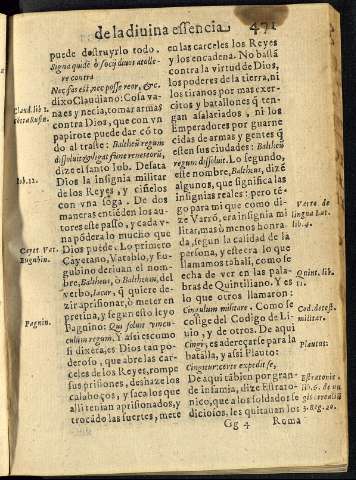 de la diuina essencia 471
puede destruyrlo todo.
Signa quidē ò socij deuos atolle-
re contra
Nec fas est, nec posse reor, &c.
dixo Claudiano: Cosa va-
naes y necia, tomar armas
contra Dios, que con vn
papirote puede dar cō to
do al traste: Baltheū regum
dissoluit & pręcingit fune renes eorū,
dize el santo Iob. Desata
Dios la insignia militar
de los Reyes, y ciñelos
con vna soga. De dos
maneras entiēden los au-
tores este passo, y cada v-
na pōdera lo mucho que
Dios puede. Lo primero
Cayetano, Vatablo, y Eu-
gubino deriuan el nom-
bre, Baltheus, ò Baltheum, del
verbo, Iacar, q̄ quiere de-
zir aprisionar, ò meter en
pretina, y segun esto leyo
Pagnino: Qui soluit vincu-
culum regum. Y assi es como
si dixera, es Dios tan po-
deroso, que abre las car-
celes de los Reyes, rompe
sus prisiones, deshaze los
calaboços, y saca los que
alli tenian aprisionados, y
trocādo las suertes, mete
Claud. lib. 1.
cōtra Rufin.
Iob. 12.
Cayet. Vat.
Eugubin.
Pagnin.
en las carceles los Reyes
y los encadena. No bastā
contra la virtud de Dios,
los poderes de la tierra, ni
los tiranos por mas exer-
citos y batallones q̄ ten-
gan asalariados, ni los
Emperadores por guarne
cidas de armas y gentes q̄
estē sus ciudades: Baltheū
regum dissoluit. Lo segundo,
este nombre, Baltheus, dizē
algunos, que significa las
insignias reales: pero tē-
go para mi que como di-
ze Varrō, era insignia mi
litar, mas ò menos honra
da, segun la calidad de la
persona, y esta era lo que
llamamos tahali, como se
echa de ver en las pala-
bras de Quintiliano. Y es
lo que otros llamaron:
Cingulum militare. Como se
colige del Codigo de Li-
uio, y de otros. De aqui
Cingere, es adereçarse para la
batalla, y assi Plauto:
Cingitur: certe expedit se,
De aqui tābien por gran-
de infamia, dize Estrato-
nico, que a los soldados se
diciosos, les quitauan los
Varro. de
lingua Lat.
lib. 4.
Quint. lib.
11.
Cod. de test.
militar.
Plautus.
3. Reg. 20.
Gg 4 Roma